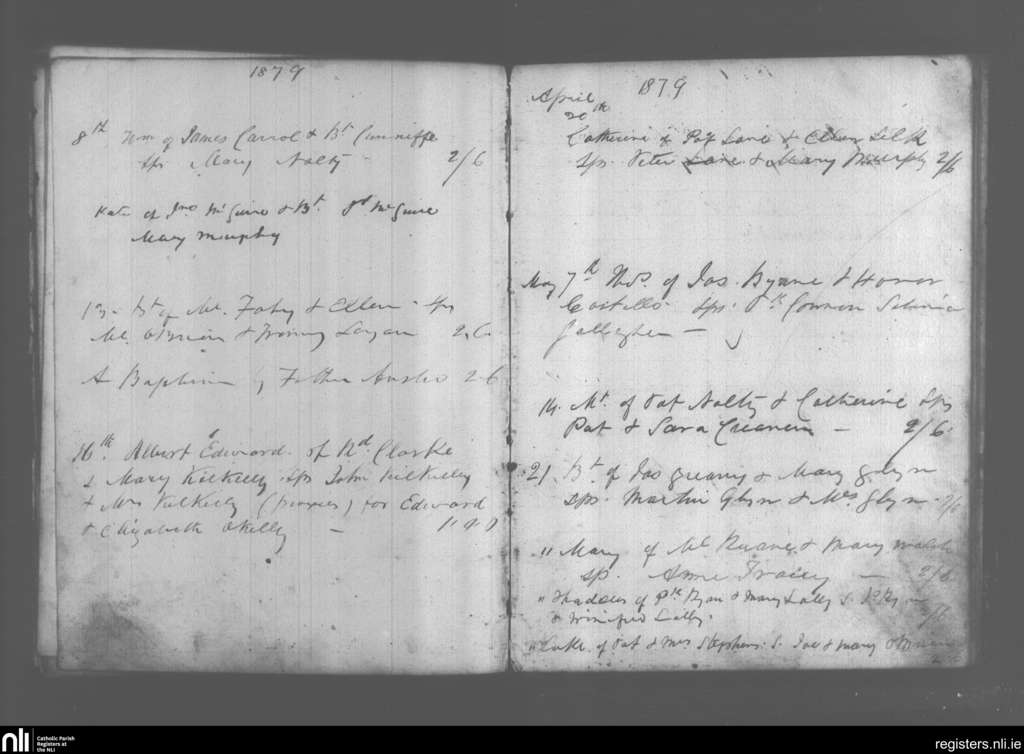 1879
8th Wm of James Carrol & Bt Cunniffe
sps Mary Nolty - 2/6
Kate of Jno McGuire & Bt. Pd McGuire
Mary Murphy
13 - Bt of Ml. Fahy & Ellen - Sps
Ml. O'Brien & Logan 2.6.
A Baptism by Father 2 6
16th. Albert Edward of Rd. Clarke
& Mary Kilkelly Sps John Kilkelly
& Mrs Kilkelly (proxies) for Edward
& Elizabeth OKelly -
1879
April
20th
Catherine of Pat Lane & Ellen Silk
Sps. Peter Lane & Mary Murphy 2/6
May 7th of Jas. Byrne & Honor
Costello. Sps. Pk Gannon
Gallagher -
14. Mt. of Pat Nolty & Catherine Sps
Pat & Sara -  2/6.
21. Bt. of Jas & Mary Glyn
sps. Martin Glyn & Mrs Glyn. 2/6
" Mary of Ml & Mary Walsh
sp. Anne Tracey - 2/6
" Thaddeus of Pk Ryan & Mary Lally S. P Ryan
& Winifred Lally.
" Luke of Pat & Mrs Stephens. S. Jas & Mary
nli
Catholic Parish
Registers at
the NLI
registers.nli.ie